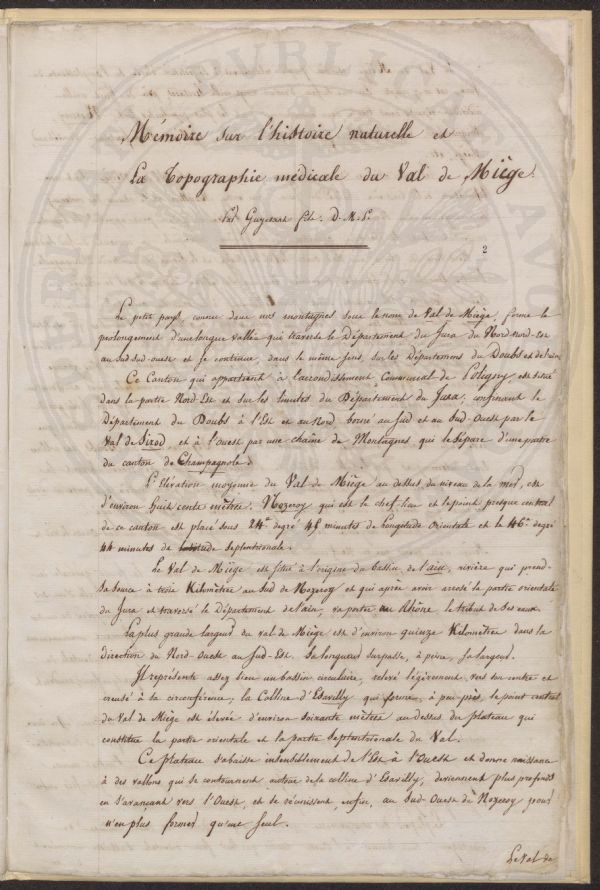 Mémoire sur l'histoire naturelle et
La Topographie médicale du Val de Miège.
Par Guyétant fils. D. M. P.
2
Le petit pays, connu dans nos montagnes sous le nom de Val de Miège, forme le
prolongement d'une longue vallée qui traverse le Département du Jura du Nord-nord-est
au sud-sud-ouest et se continue, dans le même sens, sur les Départemens du Doubs et de l'ain.
Ce Canton qui appartient à l'arrondissement Communal de Poligny, est situé
dans la partie Nord-Est et sur les limites du Département du Jura; confinant le
Département du Doubs à l'Est et au Nord, borné au Sud et au Sud-Ouest par le
Val de Sirod, et à l'Ouest par une chaine de Montagnes qui le sépare d'une partie
du canton de Champagnole.
L'élévation moyenne du Val de Miège au dessus du niveau de la mer, est
d'environ huit cents mètres. Nozeroy qui est le chef-lieu et le point presque central
de ce canton est placé sous 24e degré 45 minutes de Longitude Orientale et le 46e degré
44 minutes de latitude septentrionale.
Le Val de Miège est situé à l'origine du bassin de l'ain, rivière qui prend
sa source à trois Kilomètres au Sud de Nozeroy et qui après avoir arrosé la partie orientale
du Jura et traversé le Département de l'ain, va porter au Rhône le tribut de ses eaux.
La plus grande largeur du val de Miège est d'environ quinze Kilomètres dans la
direction du Nord-Ouest au Sud-Est. Sa longueur surpasse, à peine, sa largeur.
Il représente assez bien un bassin circulaire, relevé légèrement vers son centre et
creusé à sa circonférence; la Colline d'Esavilly qui forme, à peu-près, le point central
du Val de Miège est élevée d'environ soixante mètres au-dessus du plateau qui
constitue la partie orientale et la partie septentrionale du Val.
Ce plateau s'abaisse insensiblement de l'Est à l'Ouest et donne naissance
à des vallons qui se contournent autour de la colline d'Esavilly, deviennent plus profonds
en s'avançant vers l'Ouest, et se réunissent, enfin, au Sud-Ouest de Nozeroy pour
n'en plus former qu'un seul.
Le Val de